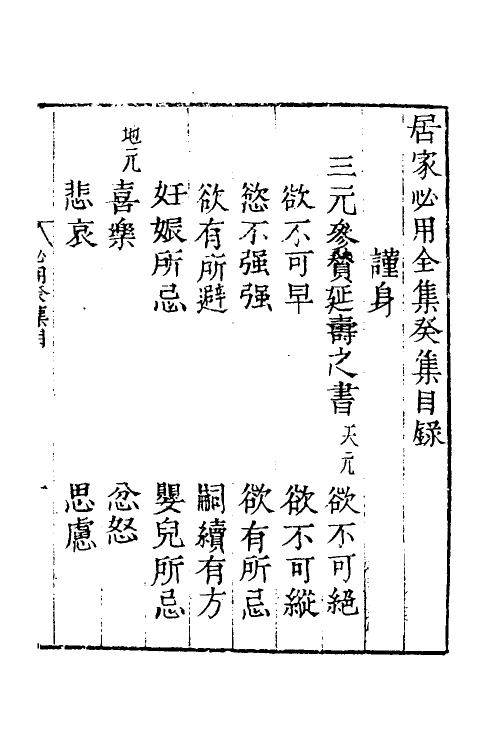 居家必用全集癸集目録
謹身
三元參贊延壽之書 天元 欲不可絕
欲不可早 欲不可縱
慾不强强 欲有所忌
欲有所避 嗣續有方
妊娠所忌 嬰兒所忌
地元 喜樂 忿怒
悲哀 思慮
必用癸集目 一